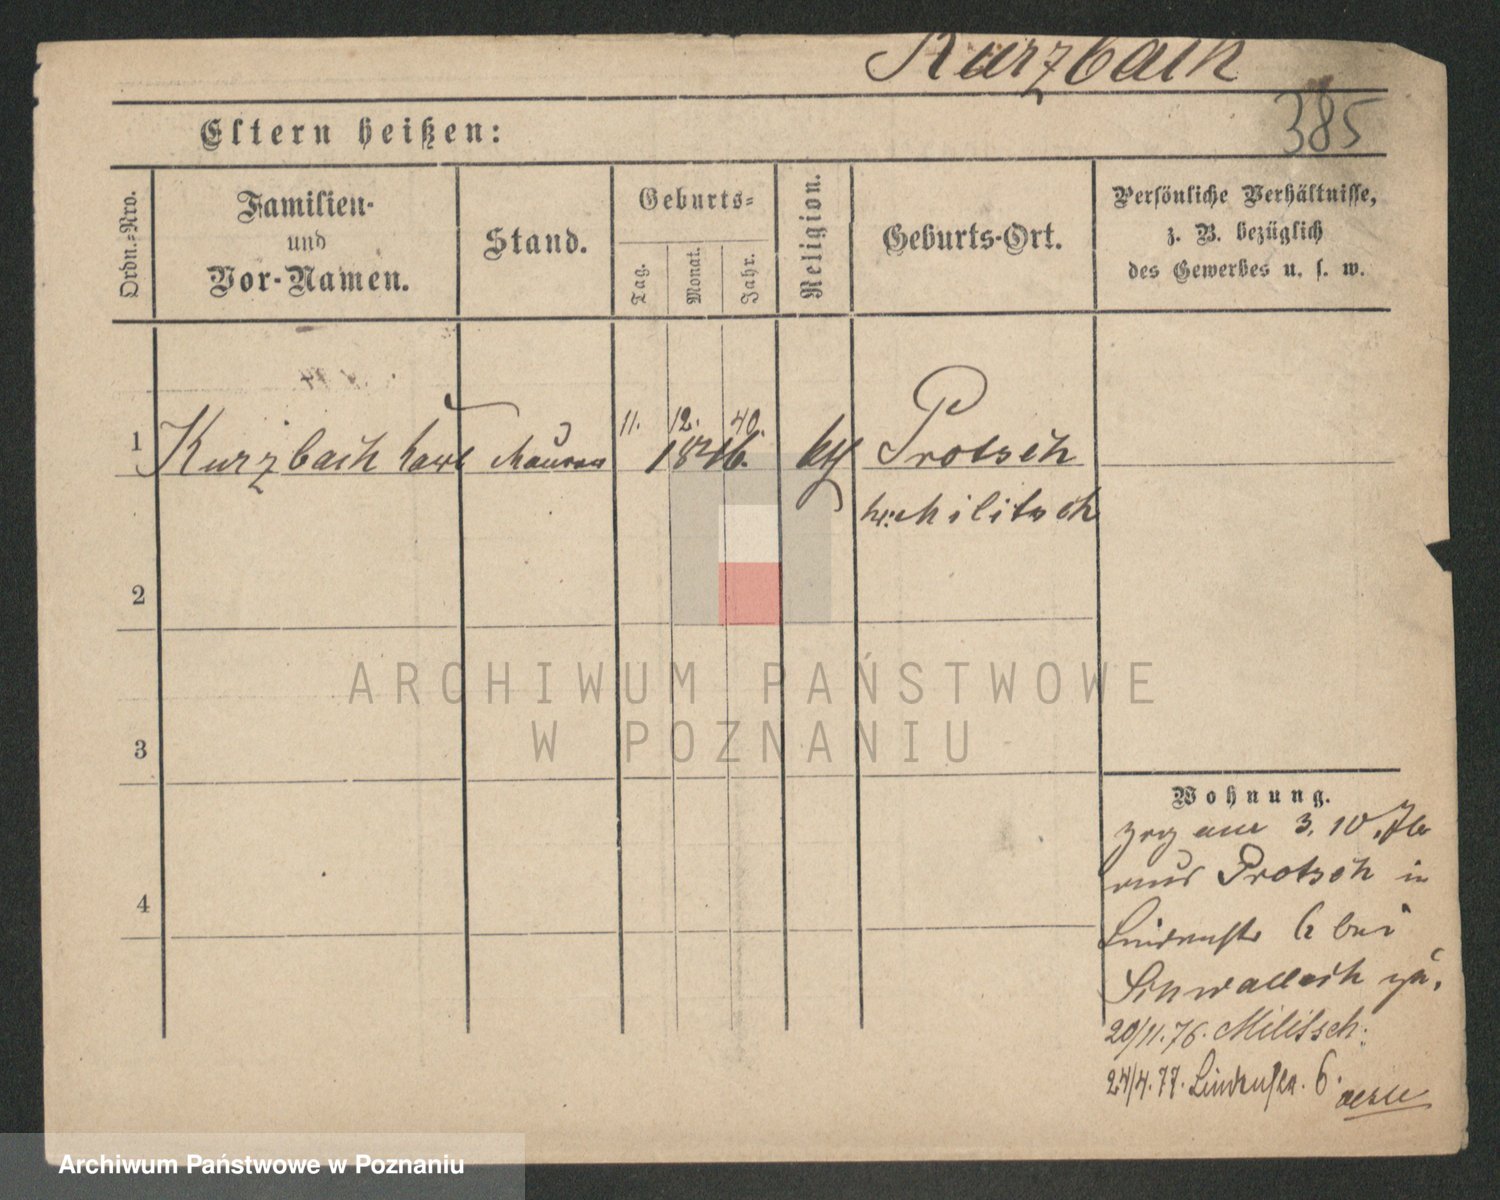 Kurzbach
385
Eltern heißen:
Ordn.-Nro.
Familien-
und
Vor-Namen.
Stand.
Geburts-
Tag.
Monat.
Jahr.
Religion.
Geburts-Ort.
Persönliche Verhältnisse,
z. B. bezüglich
des Gewerbes u. s. w.
11. 12. 40.
1 Kurzbach Karl Maurer 1846. Protsch
Militsch
2
3
4
ARCHIWUM PAŃSTWOWE
W POZNANIU
Wohnung.
zog am 3. 10. 76
aus Protsch in
Lindenstr 6 bei
zu.
20/11. 76. Militsch.
24/4. 77. Lindenstr. 6.
Archiwum Państwowe w Poznaniu